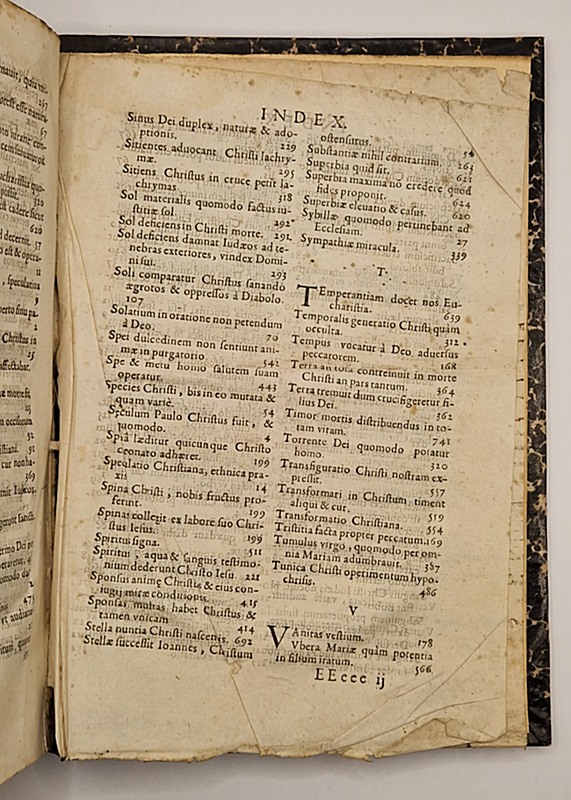 INDEX.
Sinus Dei duplex, naturæ & ado-
ptionis. 229
Sitientes aduocant Christi lachry-
mæ. 295
Sitiens Christus in cruce petit la-
chrymas 318
Sol materialis quomodo factus iu-
stitiæ sol 292
Sol deficiens in Christi morte. 291
Sol deficiens damnat Iudæos ad te-
nebras exteriores, vindex Domi-
ni sui. 293
Soli comparatur Christus sanando
ægrotos & oppressos à Diabolo.
107
Solatium in oratione non petendum
à Deo. 70
Spei dulcedinem non sentiunt ani-
mæ in purgatorio 542
Spe & metu homo salutem suam
operatur. 443
Species Christi, bis in eo mutata &
quam variè. 54
Speculum Paulo Christus fuit, &
quomodo. 4
Spiná læditur quicunque Christo
coronato adhæret. 199
Speculatio Christiana, ethnica pra-
xis 14
Spina Christi, nobis fructus pro-
ferunt. 199
Spinas collegit ex labore suo Chri-
stus Iesus. 199
Spiritus signa. 511
Spiritus, aqua & sanguis testimo-
nium dederunt Christo Iesu. 221
Sponsus animę Christus & eius con-
iugij miræ conditiones. 415
Sponsas multas habet Christus &
tamen vnicam 414
Stella nuntia Christi nascenis. 692
Stellæ successit Ioannes, Christum
ostensurus. 54
Substantiæ nihil contrarium. 263
Superbia quid sit. 621
Superbia maxima nō credere quod
fides proponit. 624
Superbiæ eleuatio & casus. 620
Sybillæ quomodo pertinebant ad
Ecclesiam. 27
Sympathiæ miracula. 339
T.
TEmperantiam docet nos Eu-
charistia. 639
Temporalis generatio Christi quàm
occulta. 312
Tempus vocatur à Deo aduersus
peccatorem. 168
Terra an tota contremuit in morte
Christi an pars tantum. 364
Terra tremuit dum crucifigeretur fi-
lius Dei. 362
Timor mortis distribuendus in to-
tam vitam. 741
Torrente Dei quomodo potatur
homo. 320
Transfiguratio Christi nostram ex-
pressit. 557
Transformari in Christum timent
aliqui & cur. 519
Transformatio Christiana. 554
Tristitia facta propter peccatum. 169
Tumulus virgo, quomodo per om-
nia Mariam adumbrauit. 387
Tunica Christi operimentum hypo-
crisis. 486
V
VAnitas vestium. 178
Vbera Mariæ quàm potentia
in filium iratum. 566
EEeee ij